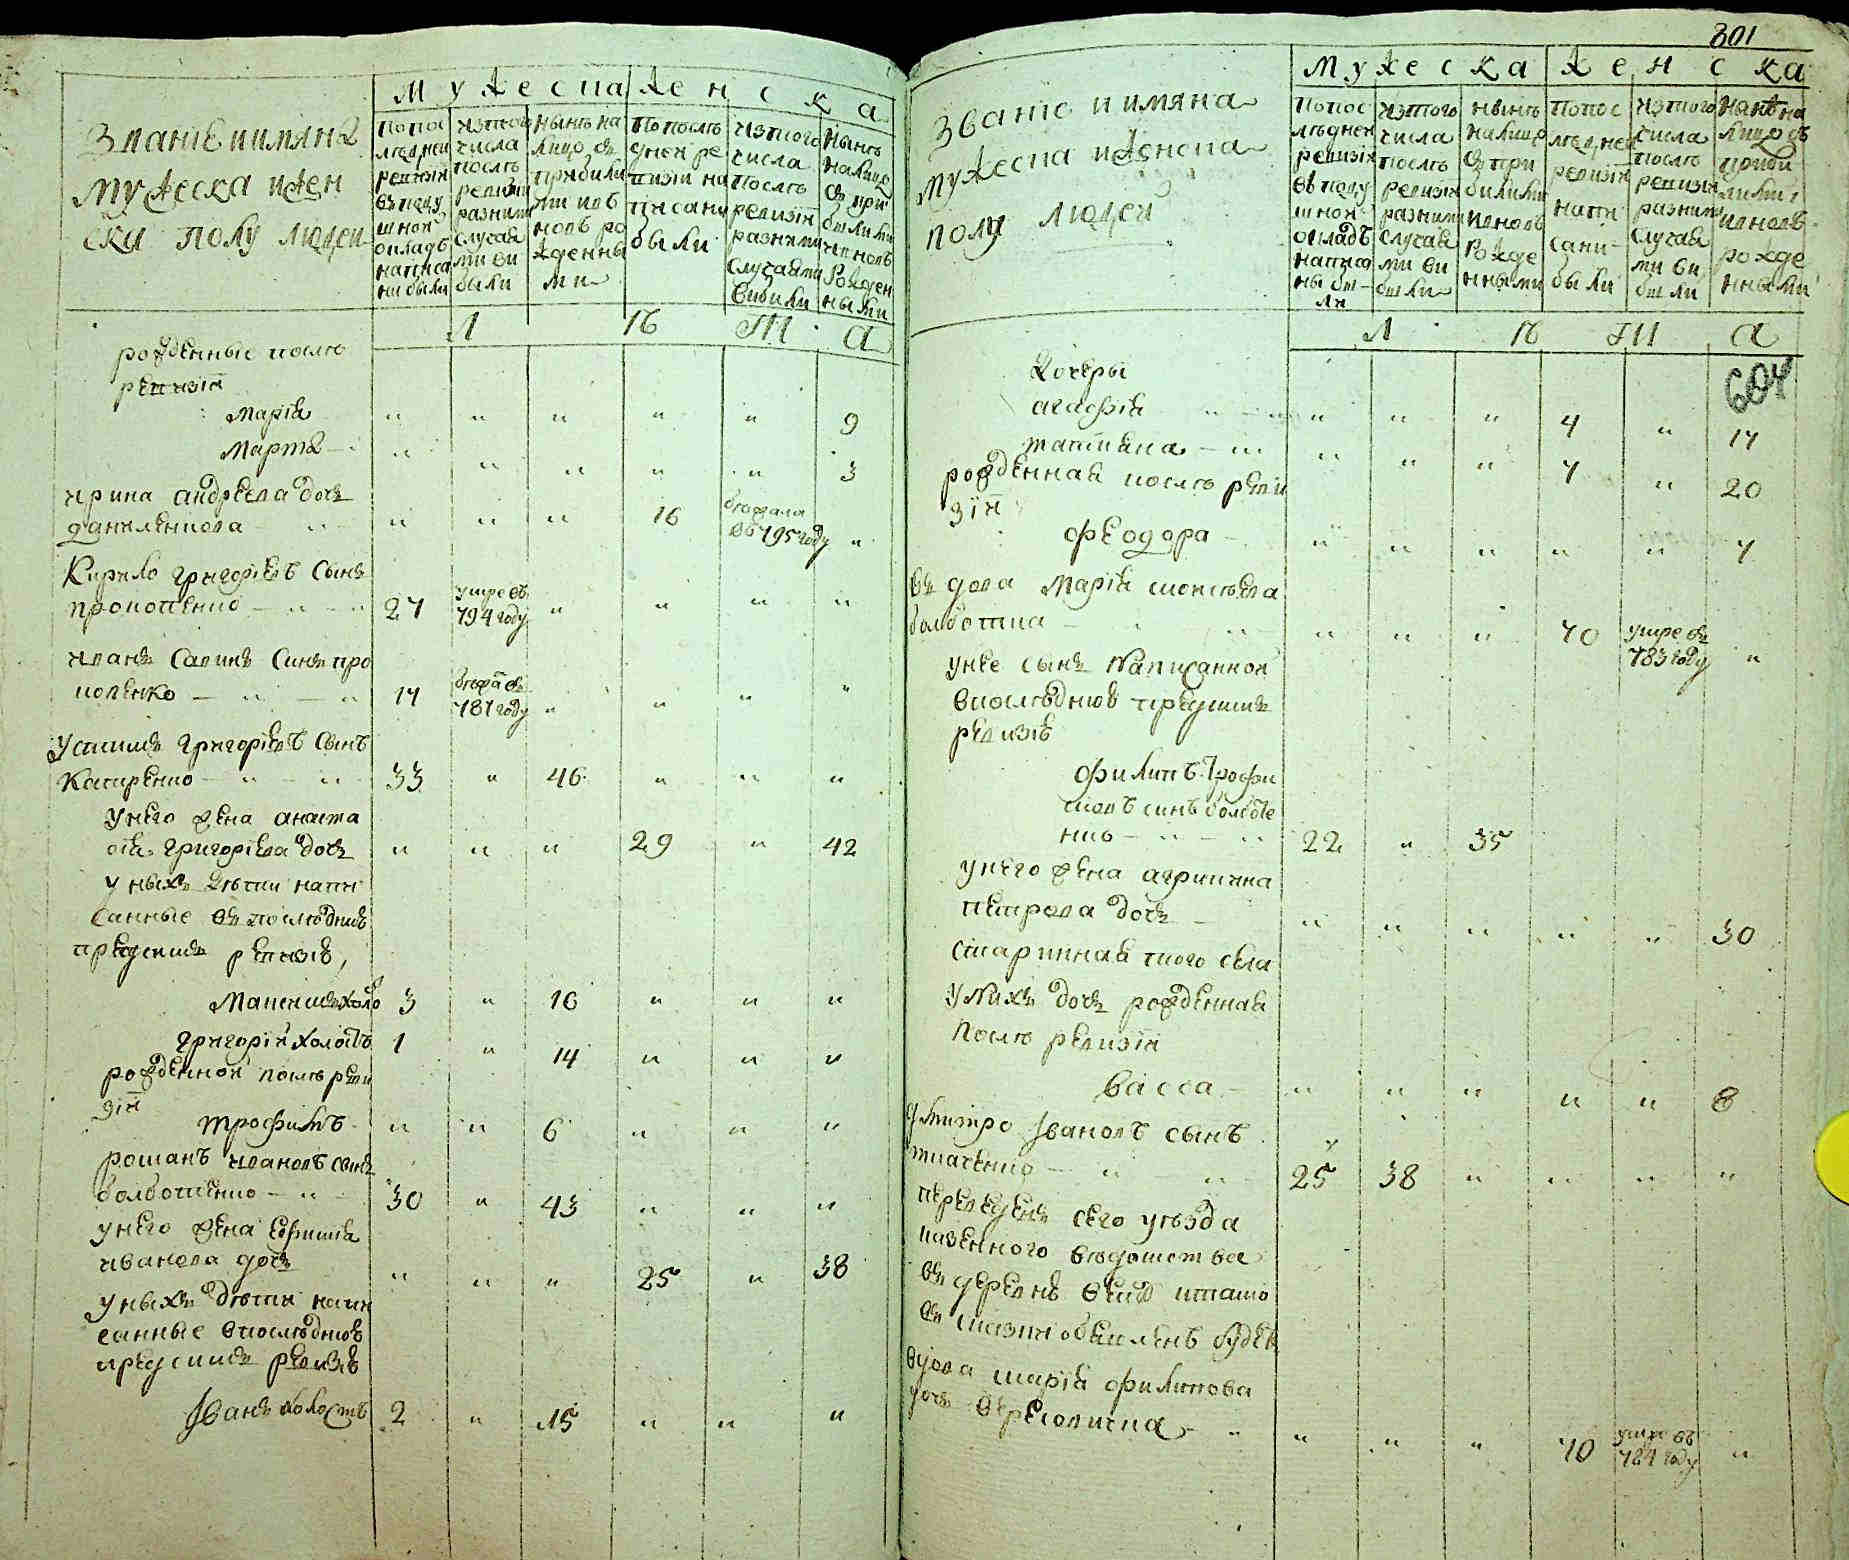 Мужеска женска
Званіе и имяна
мужеска и жен
ски полу людей
По пос
ледней
ревизіи
въ поду
шной
окладъ
написа
ни были
изтого
числа
послѣ
ревизіи
разними
случая
ми ви
были
нынѣ на
лицо съ
прибили
ми и въ
новъ ро
жденны
ми
По послѣ
дней ре
визіи на
писани
были
изтого
числа
послѣ
ревизіи
разними
случаями
вибили
нынѣ
налицо
съ при
былими
и новъ
рожден
ными
Л ѣ т а
рожденные послѣ
ревизіи
марія " " " " " 9
марта " " " " " 3
ирина андреева дочь
даниленкова " " " 16 бежала въ 795 году "
Кирило григоріевъ сынъ
прокопенко 27 умре въ 794 году " " " "
иванъ савинъ синъ про
копенко 17 бежа въ 787 году " " " "
устимъ григоріевъ сынъ
кащенко 33 " 46 " " "
у него жена анаста
сія григоріева дочь " " " 29 " 42
у ныхъ дѣти напи
санные въ последнией
предсимъ ревизіе,
максимъ холо 3 " 16 " " "
григорій холостъ 1 " 14 " " "
рожденной послѣ реви
зіи
трофимъ " " 6 " " "
романъ ивановъ синъ
болботенко 30 " 43 " " "
у него жена ефимия
иванова дочь " " " 25 " 38
у ныхъ дѣти напи
санные въ последнюе
предсимъ ревизіе
Іванъ холостъ 2 " 15 " " "
801
Мужеска женска
Званіе и имяна
мужеска и женска
полу людей
Попос
ледней
ревизіи
въ поду
шной
окладъ
написа
ны бы
ли
изтого
числа
послѣ
ревизіи
разними
случая
ми ви
были
нынѣ
налицо
съ при
билими
и новъ
рожде
нными
Попос
ледней
ревизіи
напи
сани
были
изтого
числа
послѣ
ревизіи
разними
случая
ми ви
были
нынѣ на
лицо съ
прибы
лими
и новъ
рожде
нными
Л ѣ т а
604
дочеры
агафія " " " 4 " 17
татіяна " " " 7 " 20
рожденная послѣ реви
зіи
феодора " " " " " 7
вдова марія моисѣева
болботина " " " 70 умре въ 783 году "
у нее сынъ написанной
въ последнюе предсимъ
ревизіе
филипъ трофи
мовъ синъ болботе
нко 22 " 35
у него жена агрипина
петрова дочь " " " " " 30
старинная того села
у нихъ дочь рожденная
послѣ ревизіи
васса " " " " " 8
дмитро Івановъ сынъ
ткаченко 25 38 " " " "
переведенъ сего уѣзда
казенного вѣдомства
вдова марія филипова
дочь 70 умре въ 784 году "